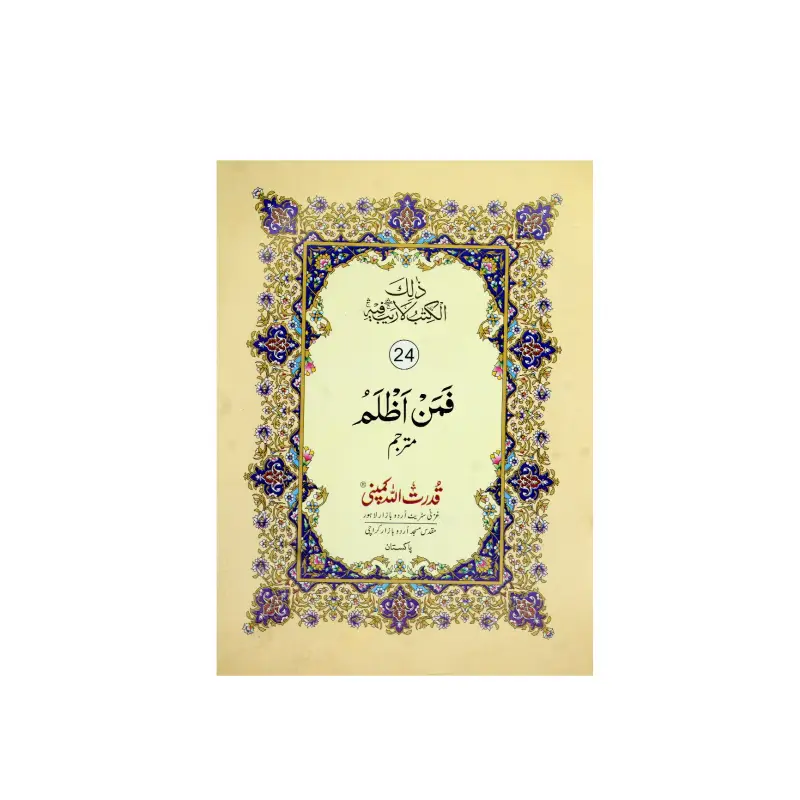 ذٰلِكَ
الْكِتٰبُ لَا رَيْبَ فِيْهِ
24
فَمَنْ اَظْلَمُ
مترجم
قدرت اللہ کمپنی®
غزنی سٹریٹ اُردو بازار لاہور
مقدس مسجد اُردو بازار کراچی
پاکستان